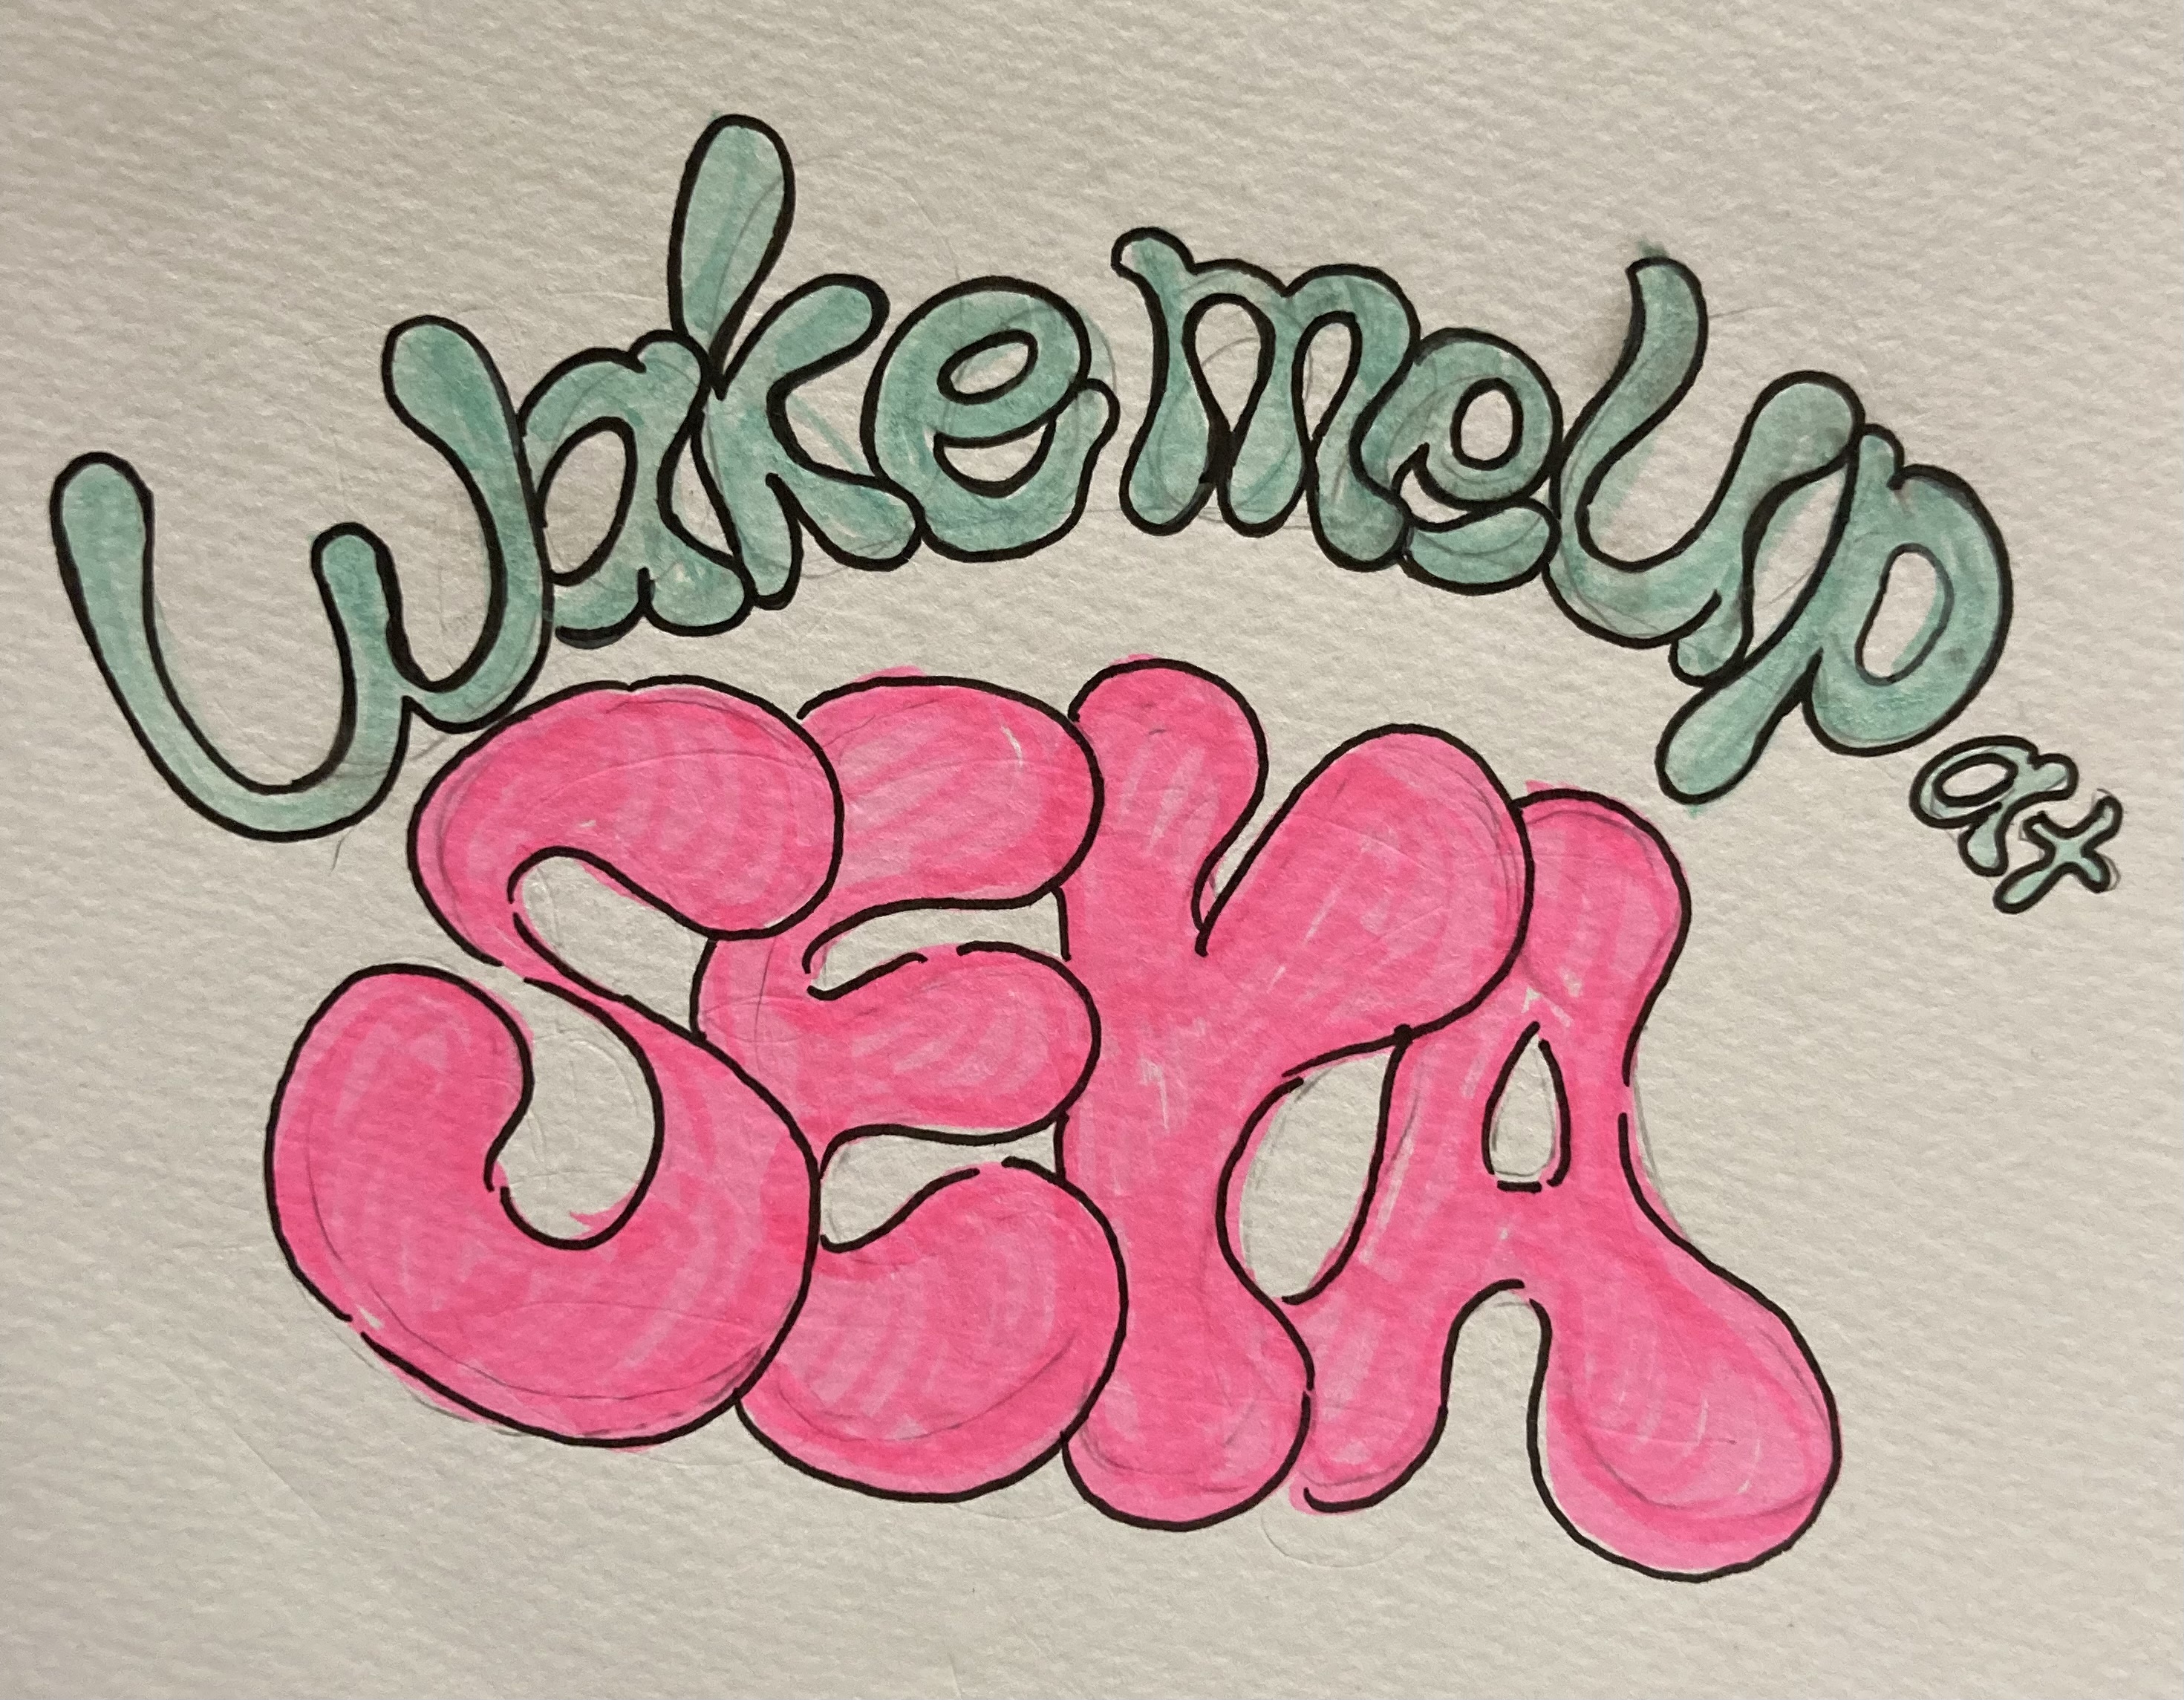 Wake me Up at
SEKA